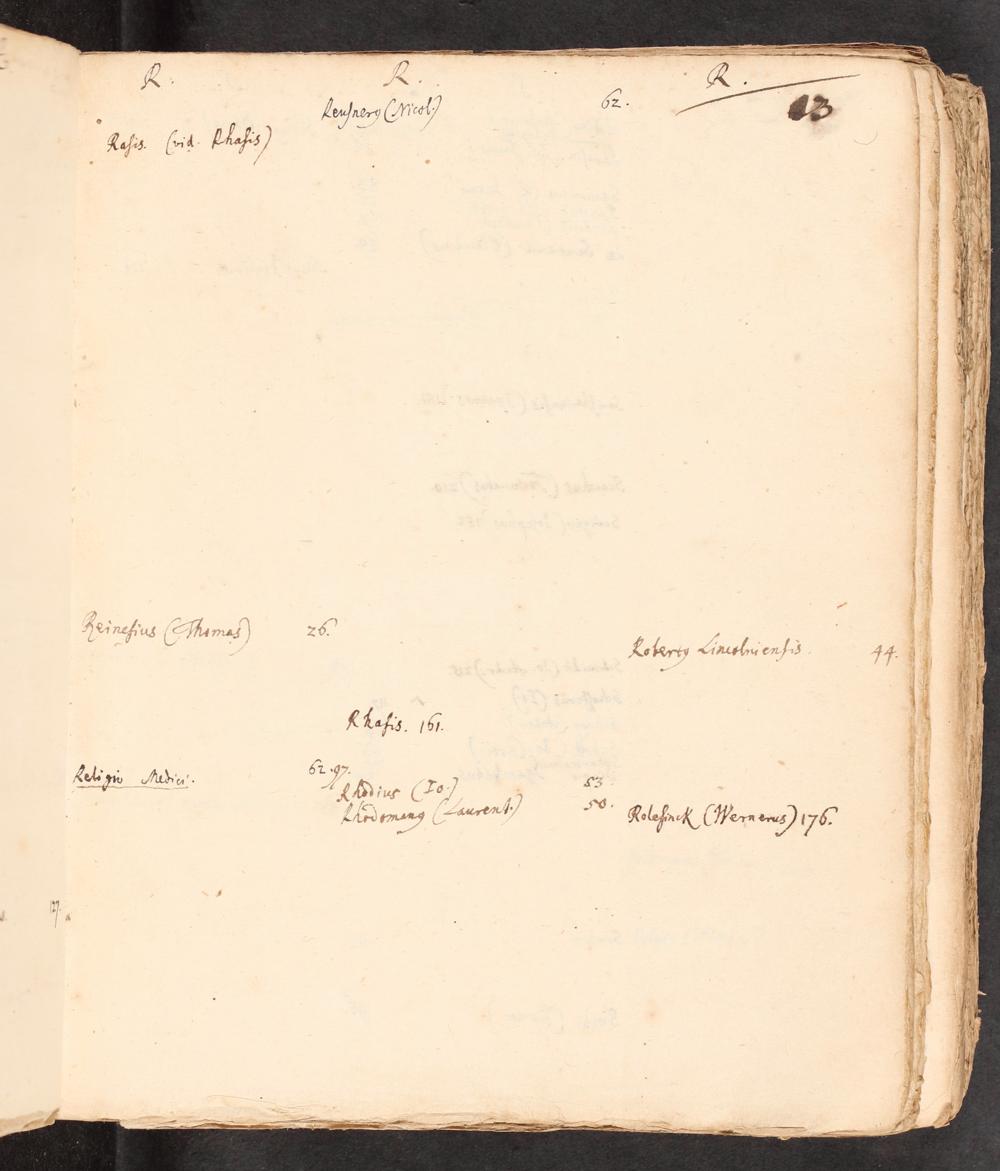 R.
R.
R.
13
Reusnerg (Nicol.) 62.
Rasis. (vid. Rhasis)
Reinesius (Thomas) 26.
Robertg Lincolniensis. 44.
Rhasis. 161.
Religio Medici. 62.97.
Rhodius (Io.) 53.
Rhodomang (Laurent.) 50.
Rolefinck (Wernerus) 176.
127.